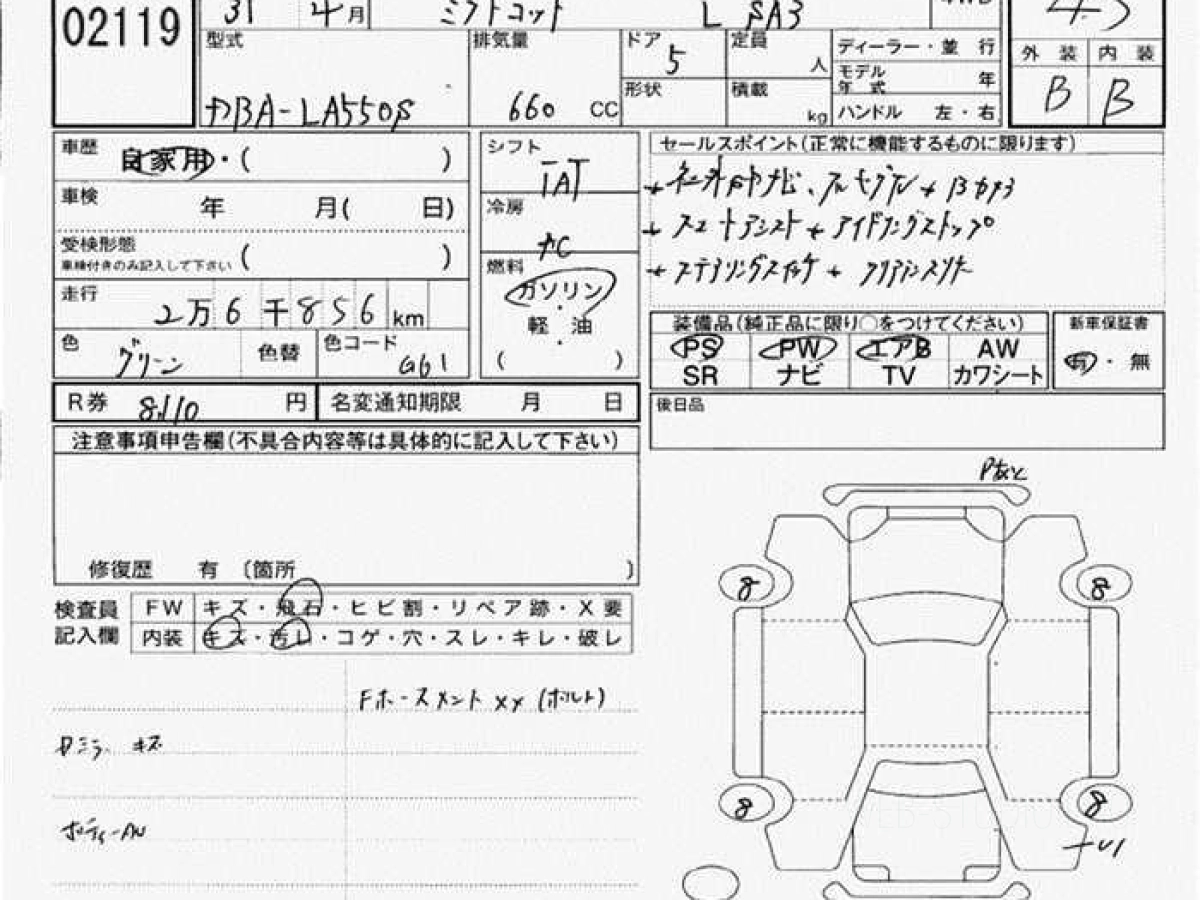 02119
31 4月 ミラトコット L SAⅢ
型式 DBA-LA550S
排気量 660 CC
ドア 5
定員 人
形状
積載 kg
ディーラー・並 行
モデル年式 年
ハンドル 左・右
外 装 内 装
B B
車歴 自家用・( )
車検 年 月( 日)
受検形態 ( )
車検付きのみ記入して下さい
走行 2万6千856km
色 グリーン 色替 色コード G61
シフト IAT
冷房 AC
燃料 ガソリン・軽油・( )
セールスポイント(正常に機能するものに限ります)
+ スマートアシスト + アイドリングストップ
+ ステアリングスイッチ + クリアランスソナー
装備品(純正品に限り○をつけてください)
PS PW エアB AW
SR ナビ TV カワシート
新車保証書
有・無
R券 8,110 円
名変通知期限 月 日
後日品
注意事項申告欄(不具合内容等は具体的に記入して下さい)
修復歴 有 〔箇所 〕
検査員記入欄
FW キズ・飛石・ヒビ割・リペア跡・X要
内装 キズ・汚レ・コゲ・穴・スレ・キレ・破レ
Fホースメント XX (ボルト)
キズ
8 8
8 8